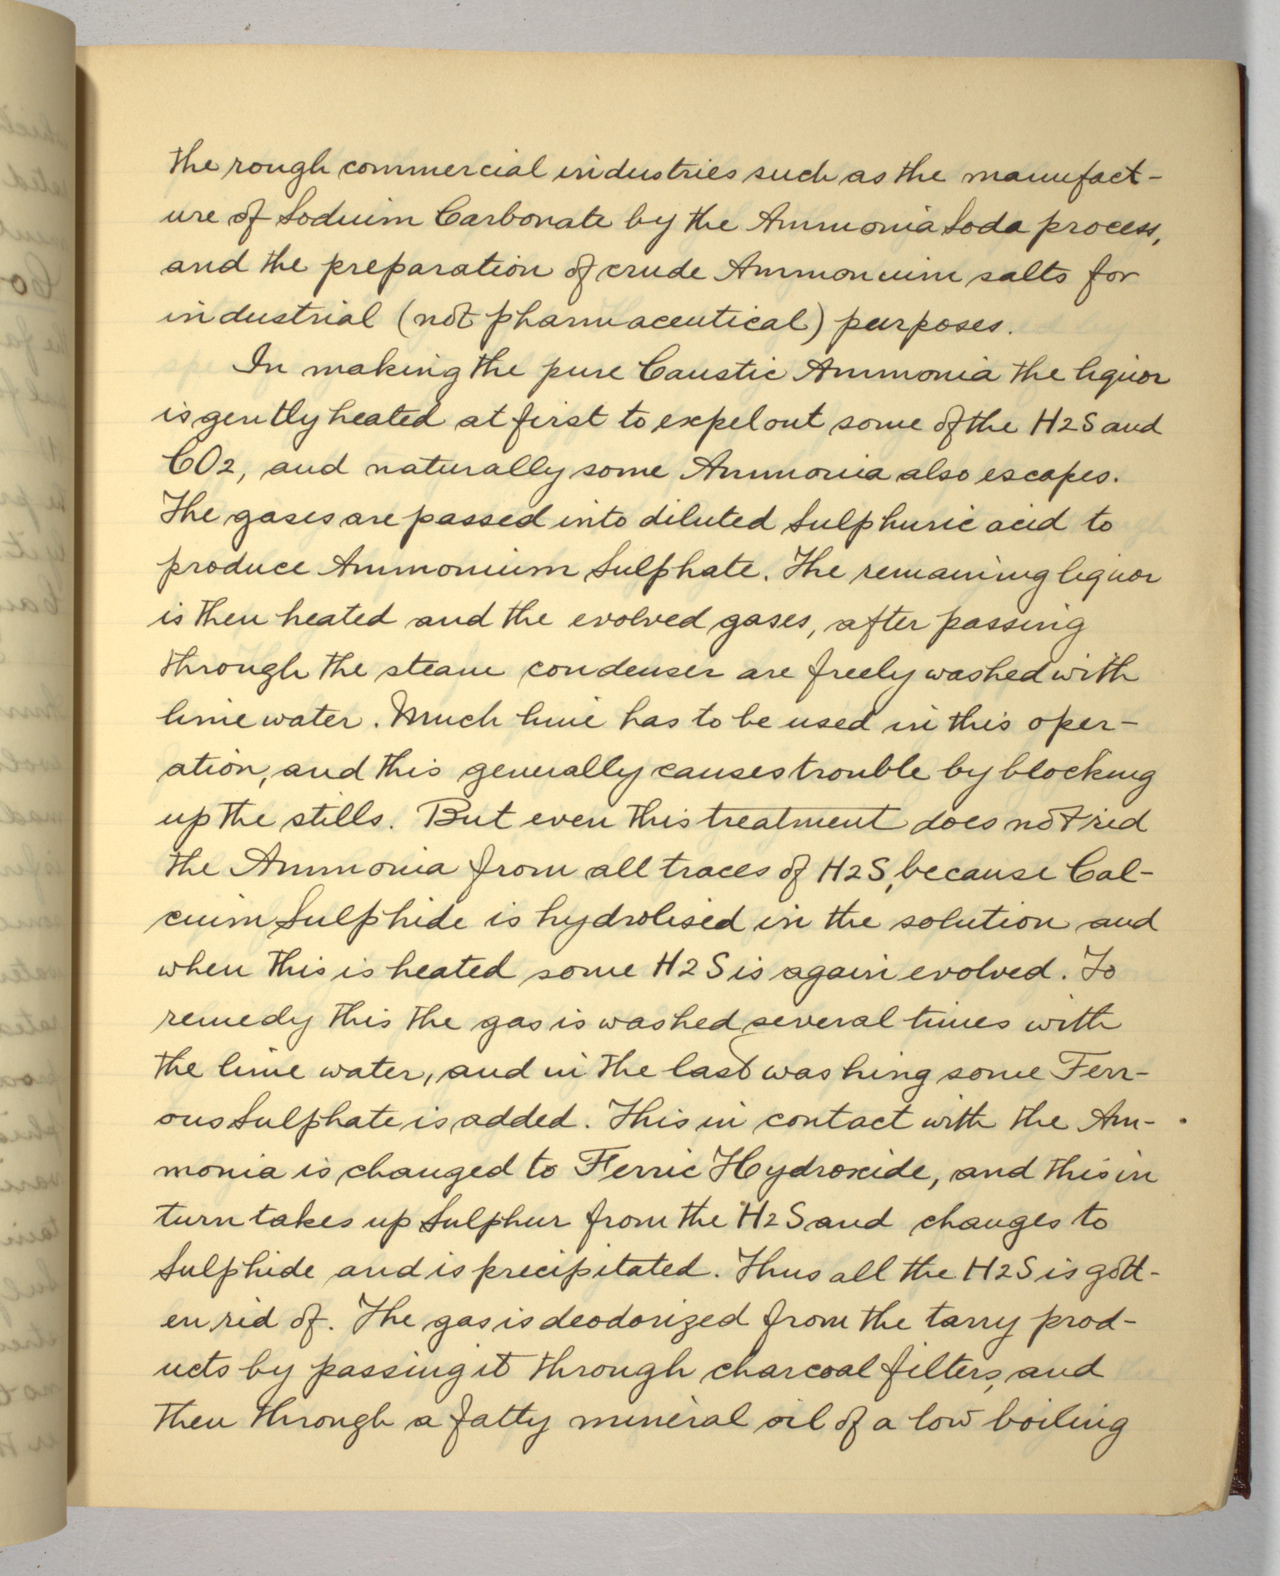 the rough commercial industries such as the manufact-
ure of Sodium Carbonate by the Ammonia Soda process,
and the preparation of crude Ammonium salts for
industrial (not pharmaceutical) purposes.
In making the pure Caustic Ammonia the liquor
is gently heated at first to expel out some of the H2S and
CO2, and naturally some Ammonia also escapes.
The gases are passed into diluted Sulphuric acid to
produce Ammonium Sulphate. The remaining liquor
is then heated and the evolved gases, after passing
through the steam condenser are freely washed with
lime water. Much lime has to be used in this oper-
ation, and this generally causes trouble by blocking
up the stills. But even this treatment does not rid
the Ammonia from all traces of H2S, because Cal-
cium Sulphide is hydrolised in the solution and
when this is heated some H2S is again evolved. To
remedy this the gas is washed several times with
the lime water, and in the last washing some Ferr-
ous Sulphate is added. This in contact with the Am-
monia is changed to Ferric Hydroxide, and this in
turn takes up Sulphur from the H2S and changes to
Sulphide and is precipitated. Thus all the H2S is gott-
en rid of. The gas is deodorized from the tarry prod-
ucts by passing it through charcoal filters, and
then through a fatty mineral oil of a low boiling